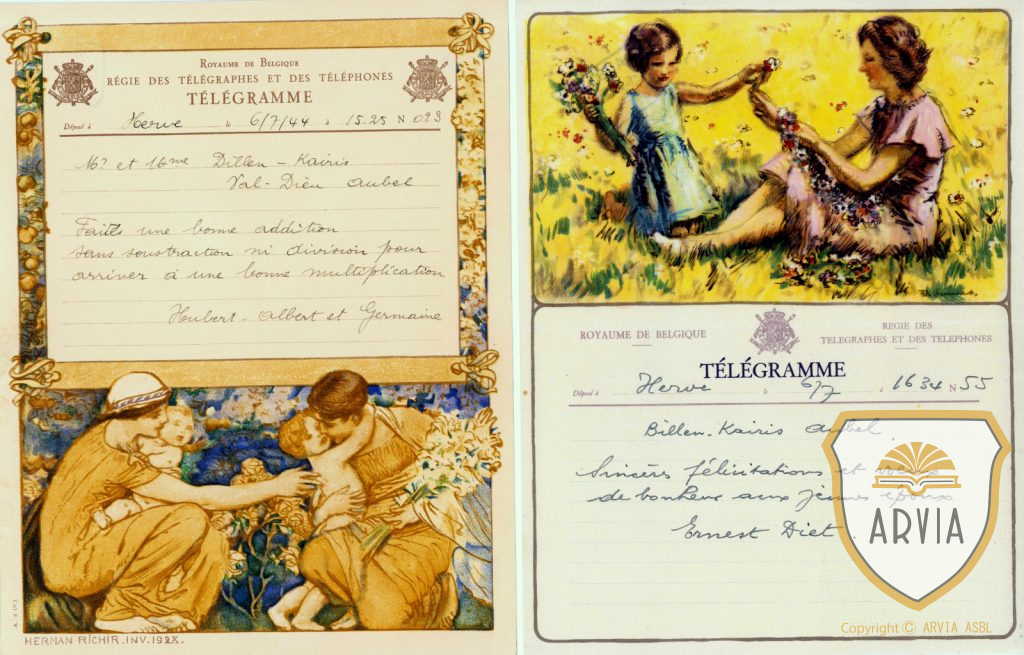 ROYAUME DE BELGIQUE
RÉGIE DES TÉLÉGRAPHES ET DES TÉLÉPHONES
TÉLÉGRAMME
Déposé à Herve le 6/7/44 à 15.25 N 023
Mr et Mme Dillen - Kairis
Val-Dieu Aubel
Faites une bonne addition
sans soustraction ni division pour
arriver à une bonne multiplication
Hubert - Albert et Germaine
HERMAN RICHIR_INV.192X.
ROYAUME DE BELGIQUE
REGIE DES
TELEGRAPHES ET DES TELEPHONES
TÉLÉGRAMME
Déposé à Herve le 6/7, 1634 N 55
Billen-Kairis Aubel
Sincères félicitations et voeux
de bonheur aux jeunes époux
Ernest Diet.
ARVIA
Copyright © ARVIA ASBL